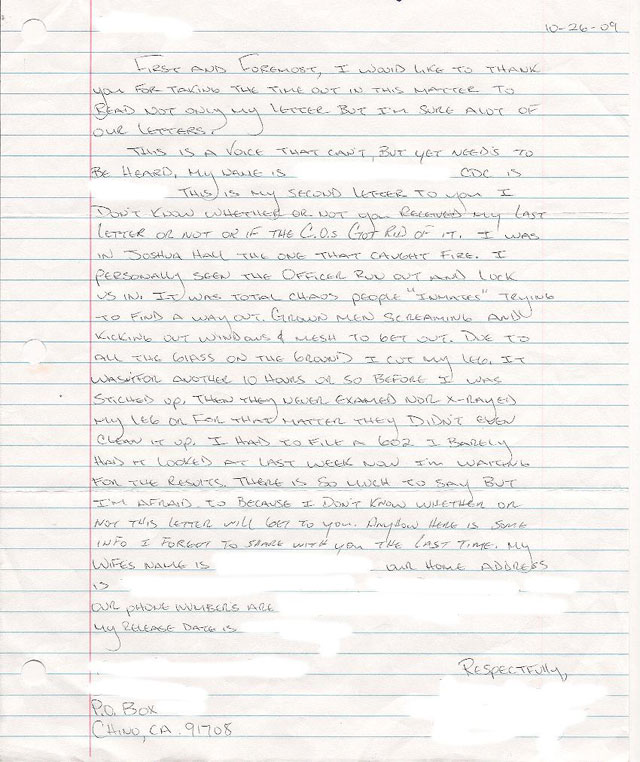 10-26-09
First and Foremost, I would like to thank
you for taking the time out in this matter to
read not only my letter but I'm sure alot of
our letters.
This is a voice that can't, but yet need's to
be heard. My name is CDC is
This is my second letter to you I
don't know whether or not you received my last
letter or not or if the C.O.s got rid of it. I was
in Joshua Hall the one that caught fire. I
personally seen the officer run out and lock
us in. It was total chaos people "inmates" trying
to find a way out. Grown men screaming and
kicking out windows & mesh to get out. Due to
all the glass on the ground I cut my leg. It
wasn't for another 10 hours or so before I was
stiched up. Then they never examed nor x-rayed
my leg or for that matter they didn't even
clean it up. I had to file a 602 I barely
had it looked at last week now I'm waiting
for the results. There is so much to say but
I'm afraid to because I don't know whether or
not this letter will get to you. Anyhow here is some
info I forgot to share with you the last time. My
wifes name is our home address
is
our phone numbers are
my release date is
Respectfully,
P.O. Box
Chino, CA. 91708